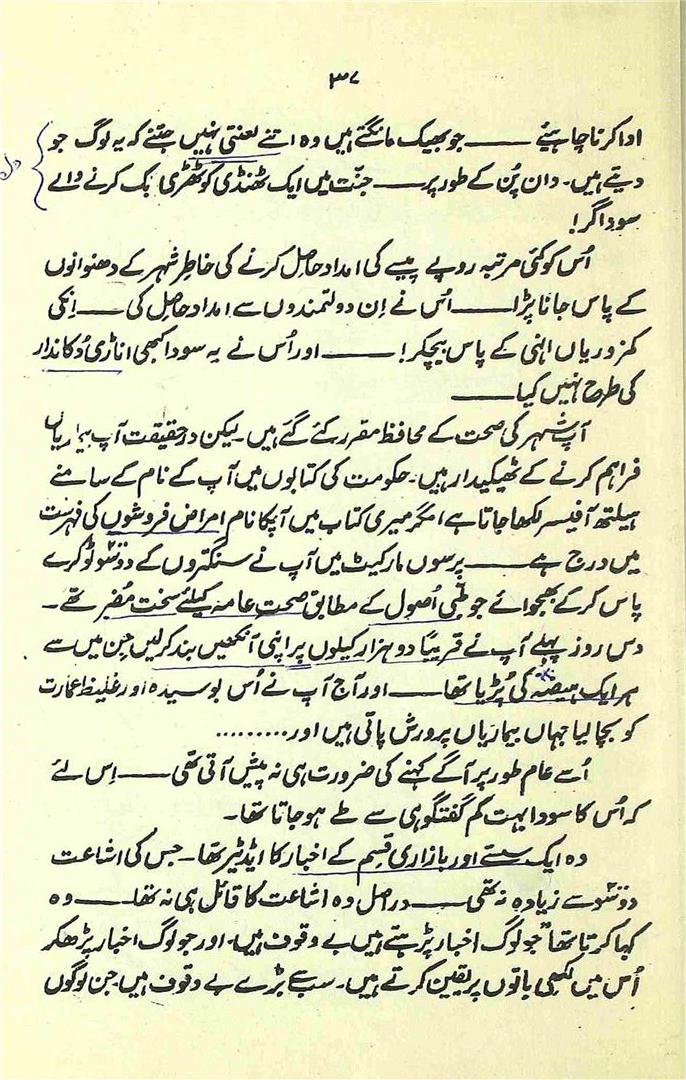 ۳۷
ادا کرنا چاہیئے ——— جو بھیک مانگتے ہیں وہ اتنے لعنتی نہیں جتنے کہ یہ لوگ جو
دیتے ہیں۔ دان پُن کے طور پر —— جنّت میں ایک ٹھنڈی کوٹھڑی بک کرنے والے
سوداگر!
اُس کو کئی مرتبہ روپے پیسے کی امداد حاصل کرنے کی خاطر شہر کے دھنوانوں
کے پاس جانا پڑا —— اُس نے اِن دولتمندوں سے امداد حاصل کی —— اِنکی
کمزوریاں اِنہی کے پاس بیچکر! —— اور اُس نے یہ سودا کبھی اناڑی دُکاندار
کی طرح نہیں کیا ——
آپ شہر کی صحت کے محافظ مقرر کئے گئے ہیں۔ لیکن در حقیقت آپ بیماریاں
فراہم کرنے کے ٹھیکیدار ہیں۔ حکومت کی کتابوں میں آپ کے نام کے سامنے
ہیلتھ آفیسر لکھا جاتا ہے! مگر میری کتاب میں آپکا نام امراض فروشوں کی فہرست
میں درج ہے —— پرسوں مارکیٹ میں آپ نے سنگتروں کے دو سَو ٹوکرے
پاس کرکے بھجوائے جو طبّی اُصول کے مطابق صحتِ عامہ کیلئے سخت مُضر تھے۔
دس روز پہلے آپ نے قریباً دو ہزار کیلوں پر اپنی آنکھیں بند کر لیں جِن میں سے
ہر ایک ہیضہ کی پُڑیا تھا —— اور آج آپ نے اُس بوسیدہ اور غلیظ عمارت
کو بچا لیا جہاں بیماریاں پرورش پاتی ہیں اور .........
اُسے عام طور پر آگے کہنے کی ضرورت ہی نہ پیش آتی تھی —— اِس لئے
کہ اُس کا سودا بہت کم گفتگو ہی سے طے ہو جاتا تھا۔
وہ ایک سستے اور بازاری قِسم کے اخبار کا ایڈیٹر تھا۔ جس کی اشاعت
دو سَو سے زیادہ نہ تھی —— در اصل وہ اشاعت کا قائل ہی نہ تھا۔ —— وہ
کہا کرتا تھا "جو لوگ اخبار پڑھتے ہیں بے وقوف ہیں۔ اور جو لوگ اخبار پڑھکر
اُس میں لکھی باتوں پر یقین کرتے ہیں۔ سب سے بڑے بے وقوف ہیں۔ جن لوگوں